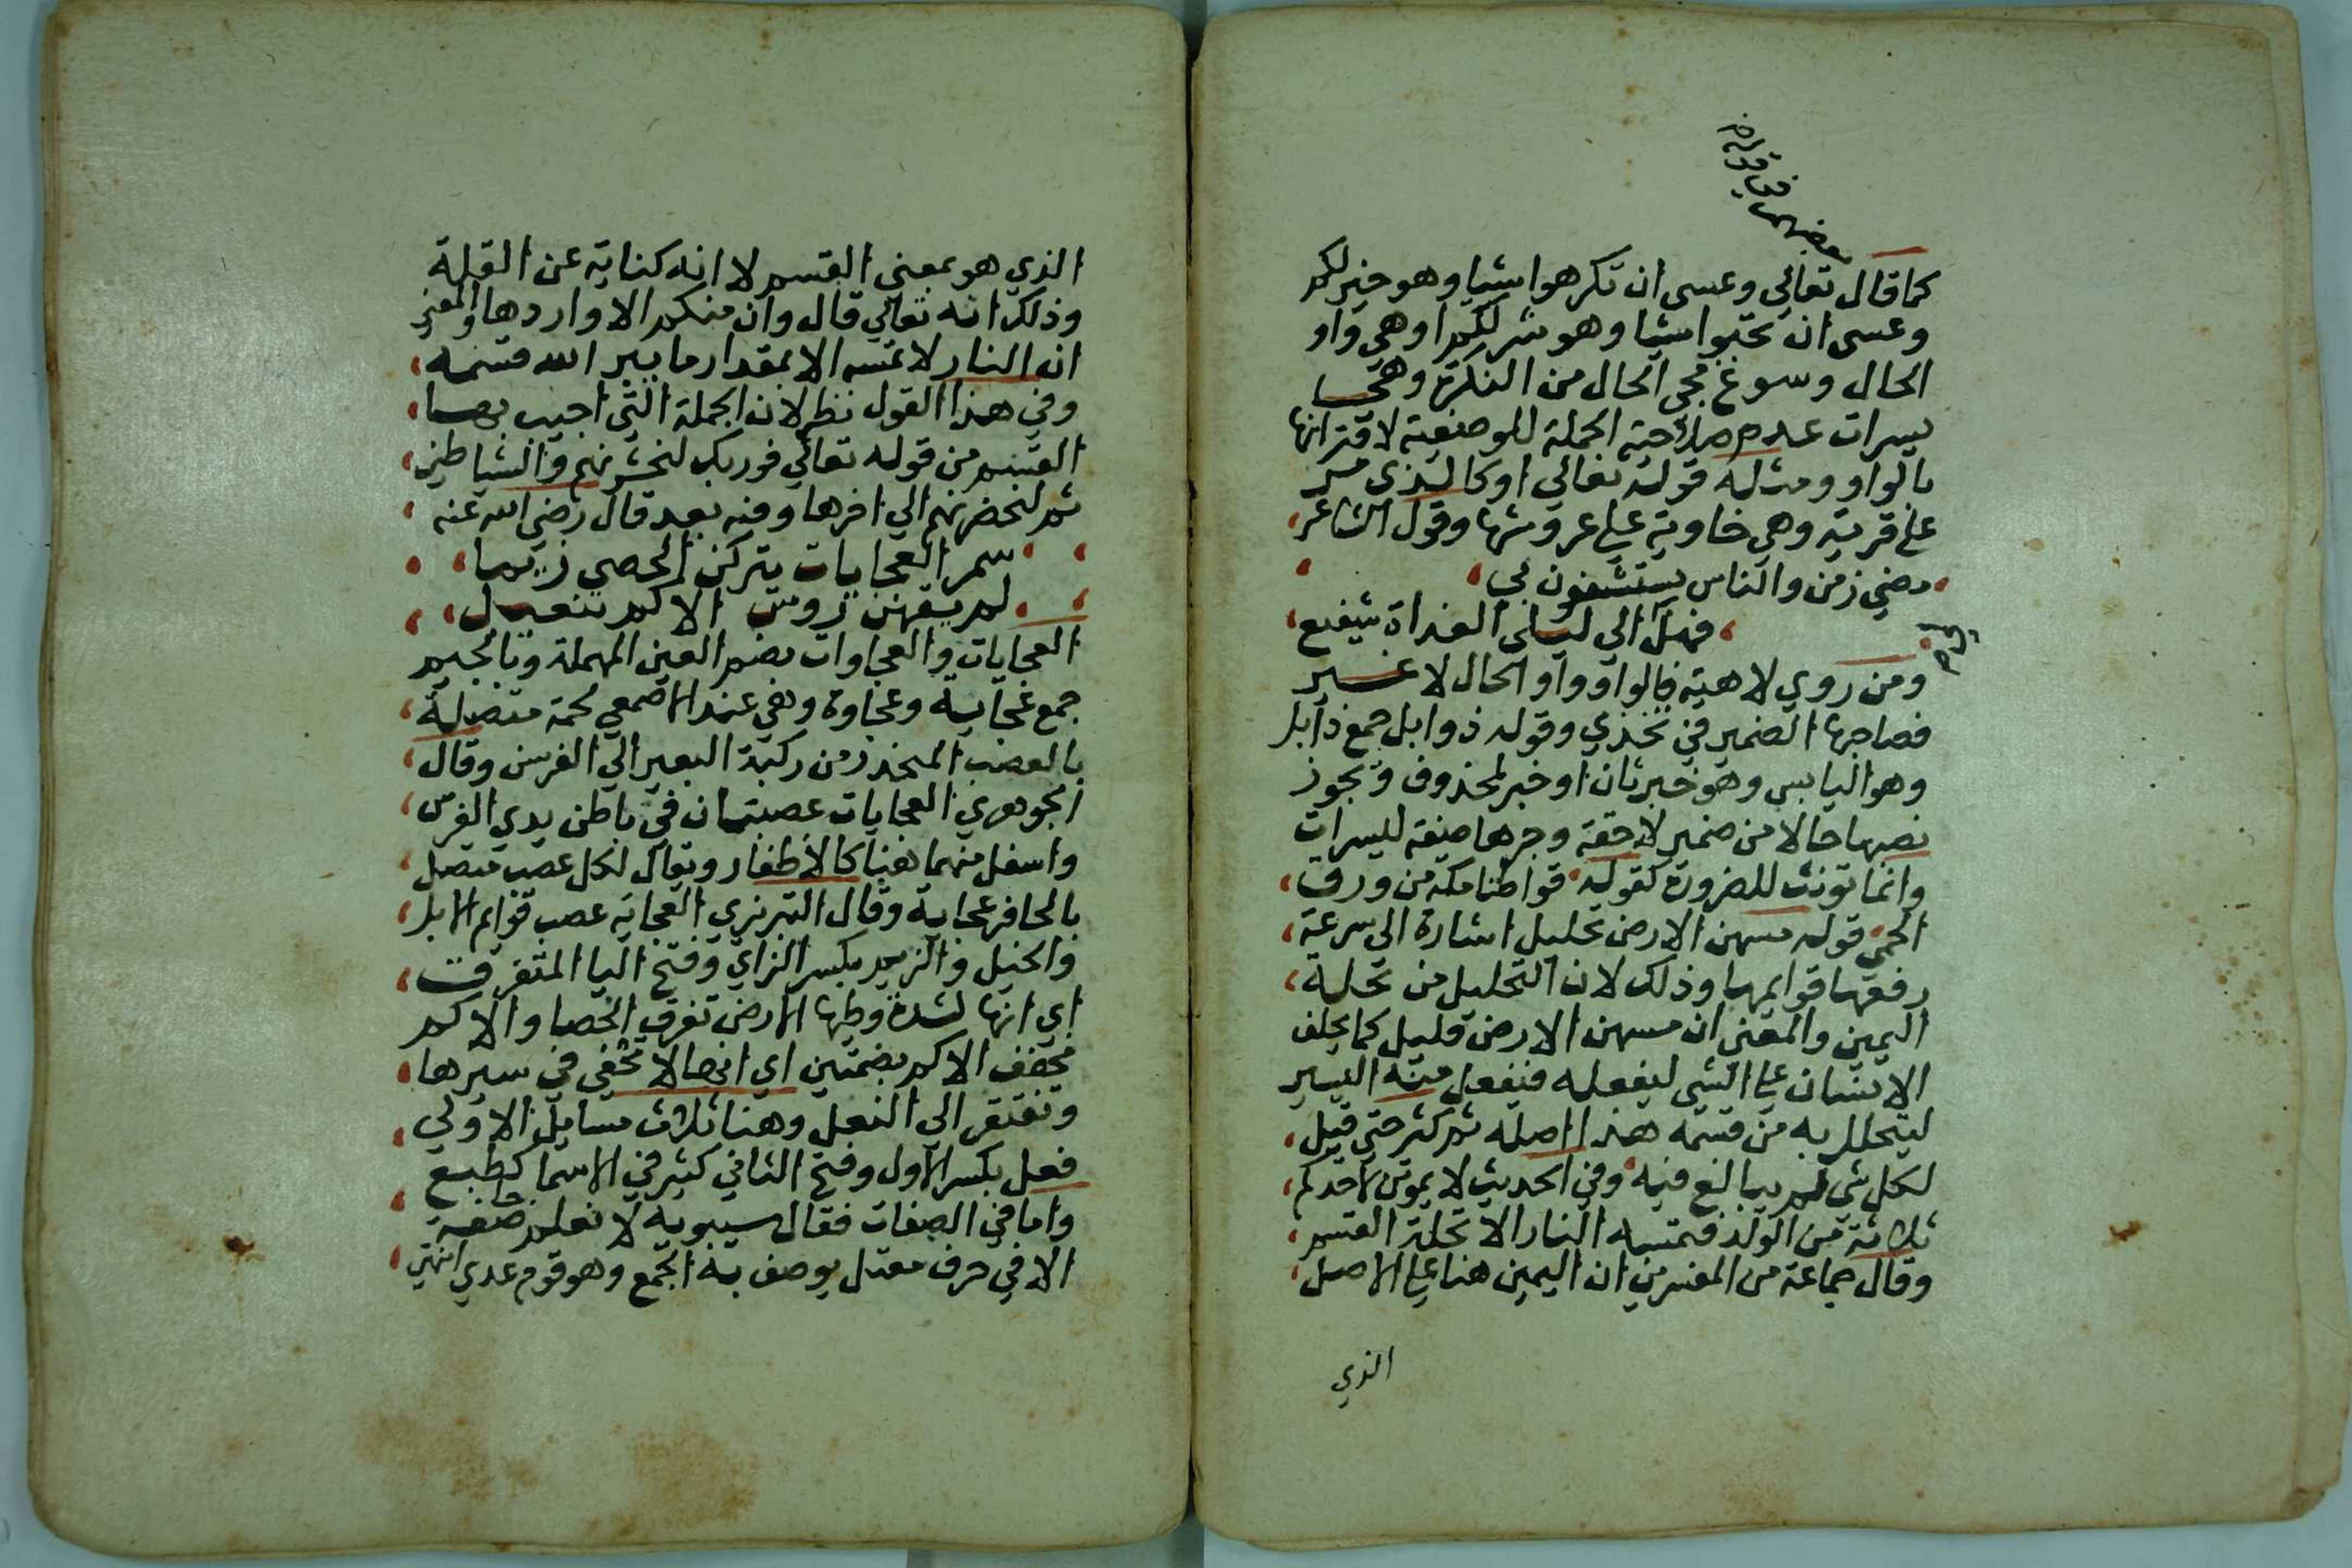 كما قال تعالي وعسى ان تكرهوا شيا وهو خير لكم
وعسى ان تحبوا شيا وهو شر لكم او هي واو
الحال وسوغ مجي الحال من النكرة وهي
يسرات عدم صلاحية الجملة للوصفية لاقترانها
بالواو ومثله قوله تعالي او كالذي مر
على قرية وهي خاوية على عروشها وقول الشاعر
مضي زمن والناس يستشفعون بي
فهل الي ليلى الغداة شفيع
ومن روي لاهية فالواو واو الحال لا غير
فصاحبها الضمير في تخذي وقوله ذوابل جمع ذابل
وهو اليابس وهو خبر ثان او خبر لمحذوف ويجوز
نصبها حالا من ضمير لاحقة وجرها صفة ليسرات
وانما تونث للضرورة كقوله قواطنا مكة من ورق
الحمى قوله مسهن الارض تحليل اشارة الى سرعة
رفعها قوايمها وذلك لان التحليل من تحلة
اليمين والمعنى ان مسهن الارض قليل كما يحلف
الانسان على الشي ليفعله فيفعل منه اليسير
ليتحلل به من قسمه هذا اصله ثم كثر حتى قيل
لكل شي لم يبالغ فيه وفي الحديث لا يموتن لاحدكم
ثلاثة من الولد فتمسه النار الا تحلة القسم
وقال جماعة من المفسرين ان اليمين هنا على الاصل
الذي
الذي هو بمعني القسم لا انه كناية عن القلة
وذلك انه تعالي قال وان منكم الا واردها والمعنى
ان النار لا تمسه الا بمقدار ما يبر الله قسمه
وفي هذا القول نظر لان الجملة التي اجيب بها
القسم من قوله تعالي فوربك لنحشرنهم والشياطين
ثم لنحضرنهم الي اخرها وفيه بعد قال رضي الله عنه
سمر العجايات يتركن الحصي زيما
لم يقهن روس الاكم تنعيل
العجايات والعجاوات بضم العين المهملة وبالجيم
جمع عجاية وعجاوة وهي عند الاصمعي لحمة متصلة
بالعصب المنحدر من ركبة البعير الي الفرسن وقال
الجوهري العجايات عصبتان في باطن يدي الفرس
واسفل منهما هنيا كالاظفار ويقال لكل عصب متصل
بالحافر عجاية وقال التبريزي العجاية عصب قوايم الابل
والخيل والزيم بكسر الزاي وفتح اليا المتفرق
اي انها لشدة وطيها الارض تفرق الحصا والاكم
مخفف الاكم بضمتين اي انها لا تحفي في سيرها
وتفتقر الي النعل وهنا ثلاث مسايل الاولي
فعل بكسر الاول وفتح الثاني كثير في الاسما كطبع
واما في الصفات فقال سيبويه لا نعلم جا صفة
الا في حرف معتل يوصف به الجمع وهو قوم عدي انتهي